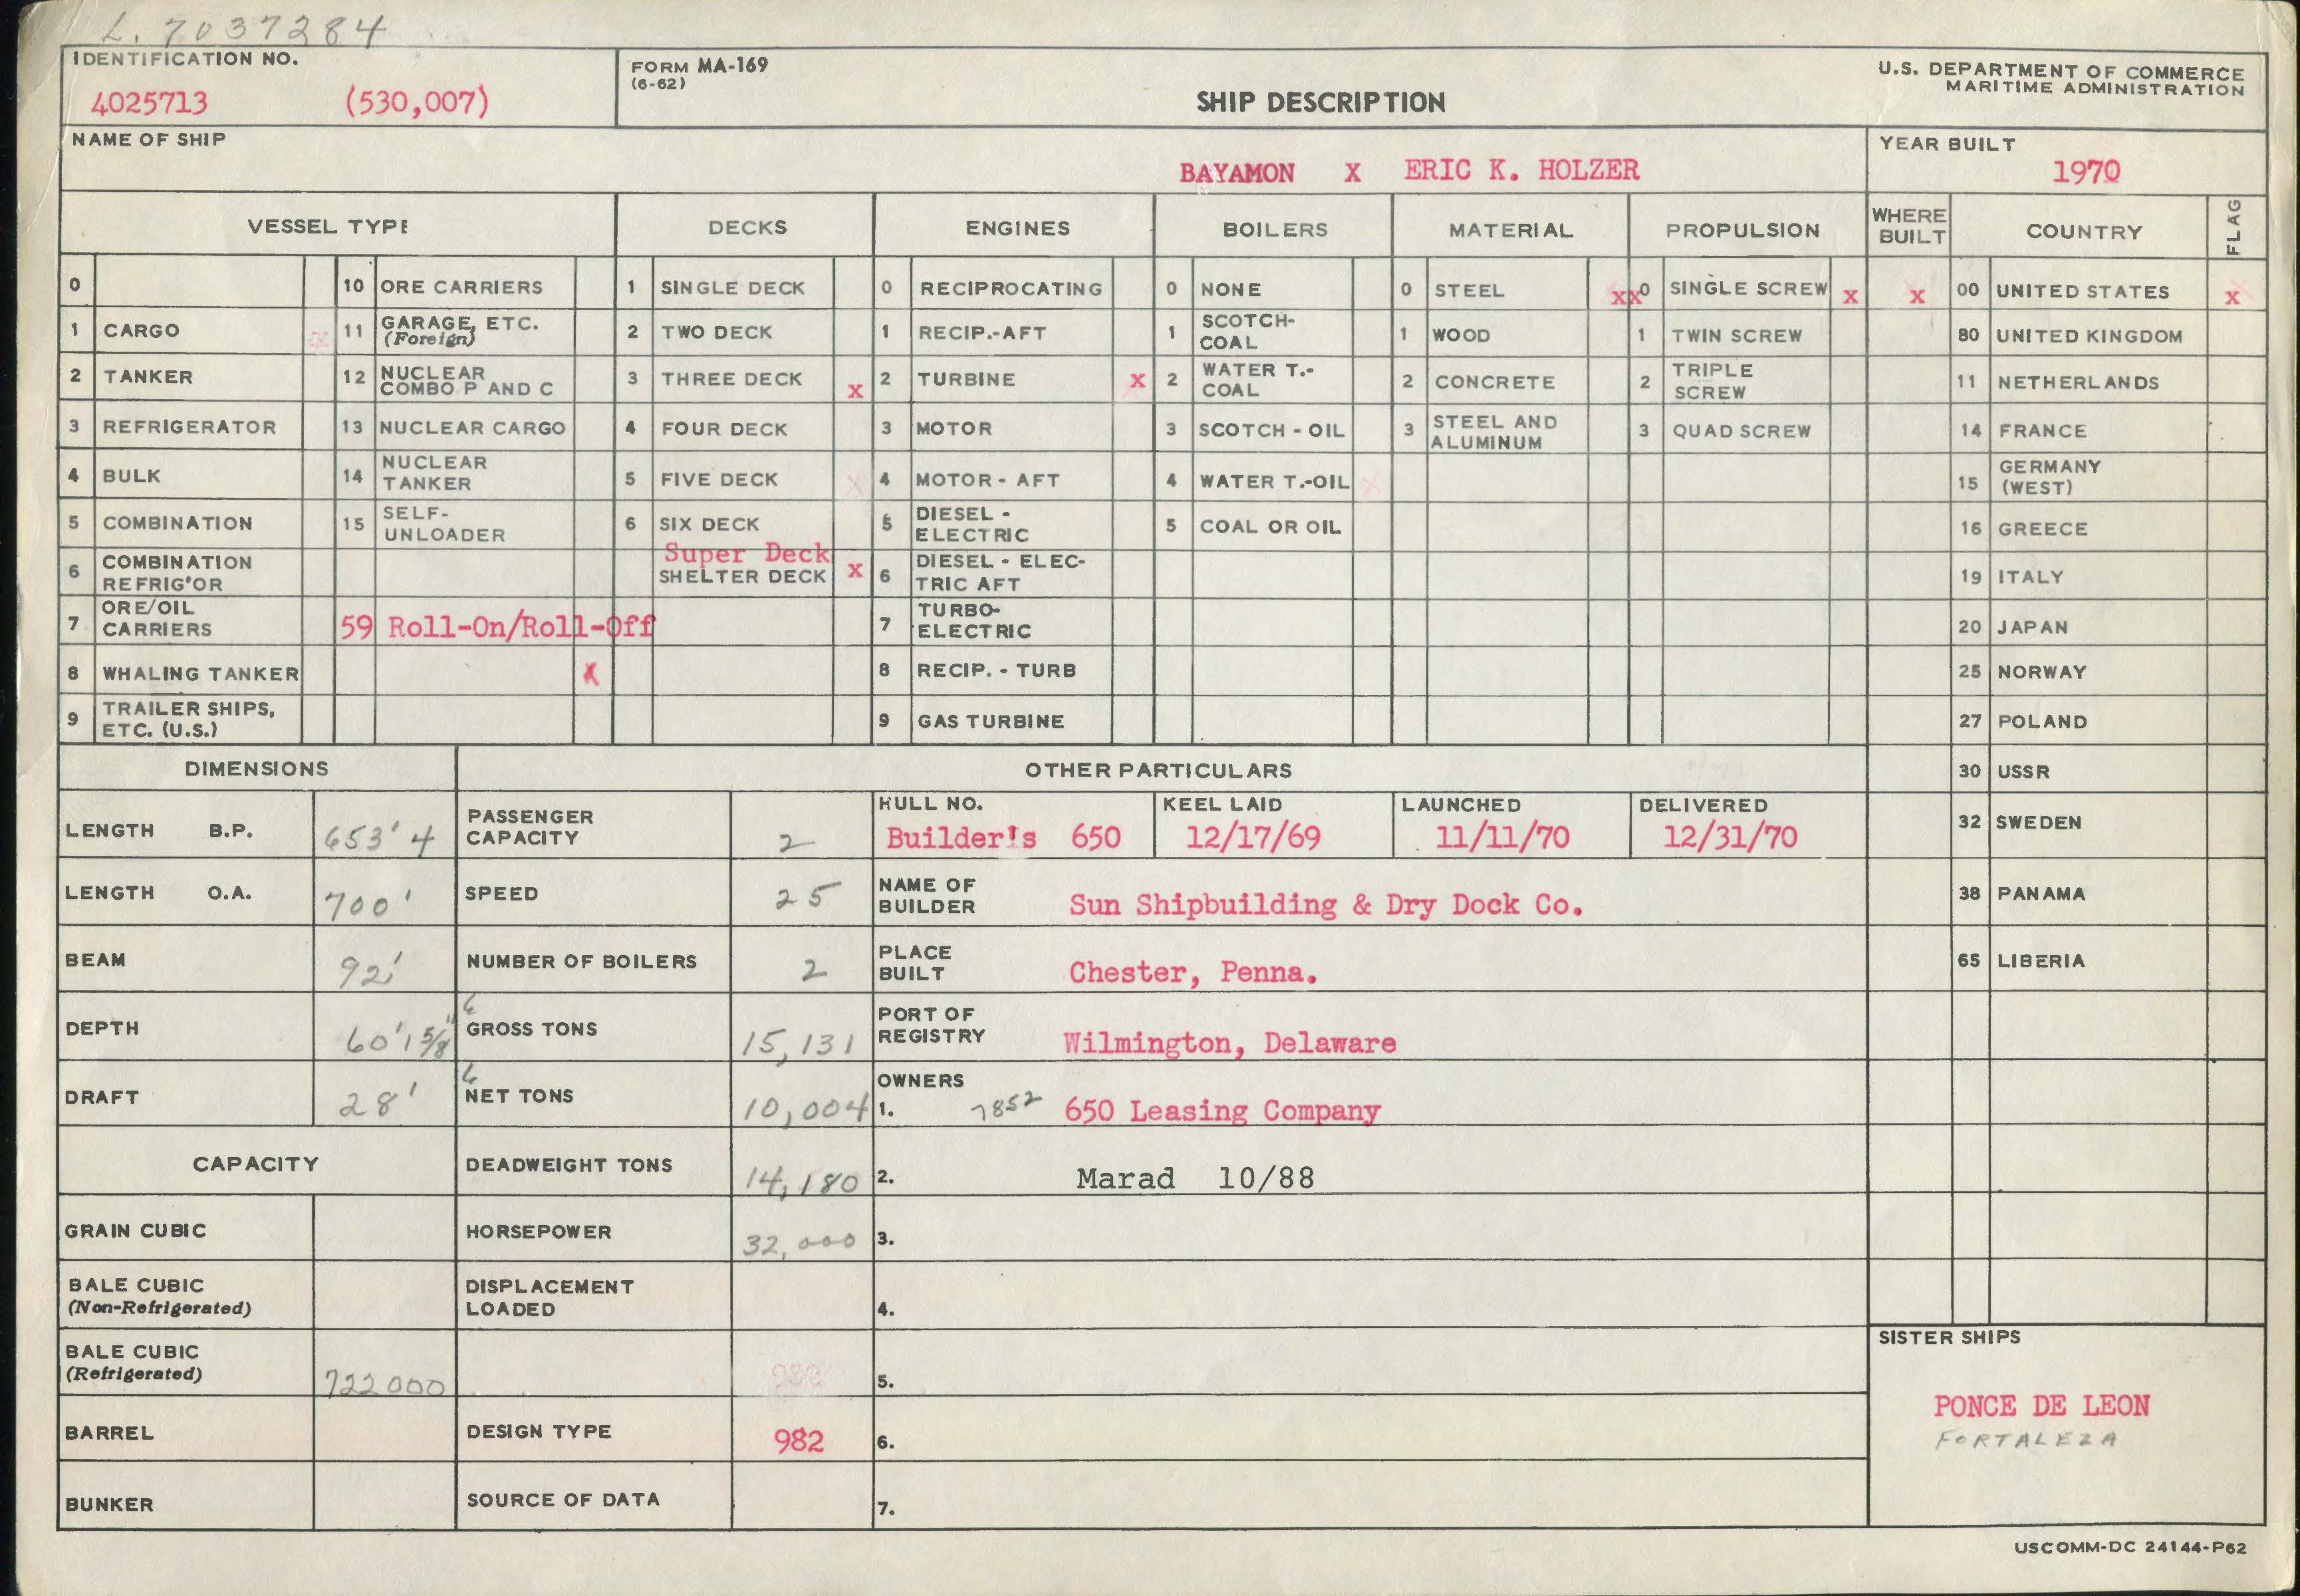 L. 7037284
IDENTIFICATION NO.
4025713 (530,007)
FORM MA-169
(6-62)
SHIP DESCRIPTION
U.S. DEPARTMENT OF COMMERCE
MARITIME ADMINISTRATION
NAME OF SHIP
BAYAMON X ERIC K. HOLZER
YEAR BUILT
1970
VESSEL TYPE DECKS ENGINES BOILERS MATERIAL PROPULSION WHERE BUILT COUNTRY FLAG
0 10 ORE CARRIERS 1 SINGLE DECK 0 RECIPROCATING 0 NONE 0 STEEL x x 0 SINGLE SCREW x x 00 UNITED STATES x
1 CARGO x 11 GARAGE, ETC. (Foreign) 2 TWO DECK 1 RECIP.-AFT 1 SCOTCH-COAL 1 WOOD 1 TWIN SCREW 80 UNITED KINGDOM
2 TANKER 12 NUCLEAR COMBO P AND C 3 THREE DECK x 2 TURBINE x 2 WATER T.-COAL 2 CONCRETE 2 TRIPLE SCREW 11 NETHERLANDS
3 REFRIGERATOR 13 NUCLEAR CARGO 4 FOUR DECK 3 MOTOR 3 SCOTCH - OIL 3 STEEL AND ALUMINUM 3 QUAD SCREW 14 FRANCE
4 BULK 14 NUCLEAR TANKER 5 FIVE DECK x 4 MOTOR - AFT 4 WATER T.-OIL x 15 GERMANY (WEST)
5 COMBINATION 15 SELF-UNLOADER 6 SIX DECK 5 DIESEL - ELECTRIC 5 COAL OR OIL 16 GREECE
6 COMBINATION REFRIG'OR Super Deck SHELTER DECK x 6 DIESEL - ELECTRIC AFT 19 ITALY
7 ORE/OIL CARRIERS 59 Roll-On/Roll-Off 7 TURBO-ELECTRIC 20 JAPAN
8 WHALING TANKER x 8 RECIP. - TURB 25 NORWAY
9 TRAILER SHIPS, ETC. (U.S.) 9 GAS TURBINE 27 POLAND
DIMENSIONS OTHER PARTICULARS 30 USSR
LENGTH B.P. 653' 4 PASSENGER CAPACITY 2 HULL NO. Builder's 650 KEEL LAID 12/17/69 LAUNCHED 11/11/70 DELIVERED 12/31/70 32 SWEDEN
LENGTH O.A. 700' SPEED 25 NAME OF BUILDER Sun Shipbuilding & Dry Dock Co. 38 PANAMA
BEAM 92' NUMBER OF BOILERS 2 PLACE BUILT Chester, Penna. 65 LIBERIA
DEPTH 60' 1 5/8" L GROSS TONS 15,131 PORT OF REGISTRY Wilmington, Delaware
DRAFT 28' L NET TONS 10,004 OWNERS 1. 7852 650 Leasing Company
CAPACITY DEADWEIGHT TONS 14,180 2. Marad 10/88
GRAIN CUBIC HORSEPOWER 32,000 3.
BALE CUBIC (Non-Refrigerated) DISPLACEMENT LOADED 4.
BALE CUBIC (Refrigerated) 722000 5.
BARREL DESIGN TYPE 982 6.
BUNKER SOURCE OF DATA 7.
SISTER SHIPS
PONCE DE LEON
FORTALEZA
USCOMM-DC 24144-P62